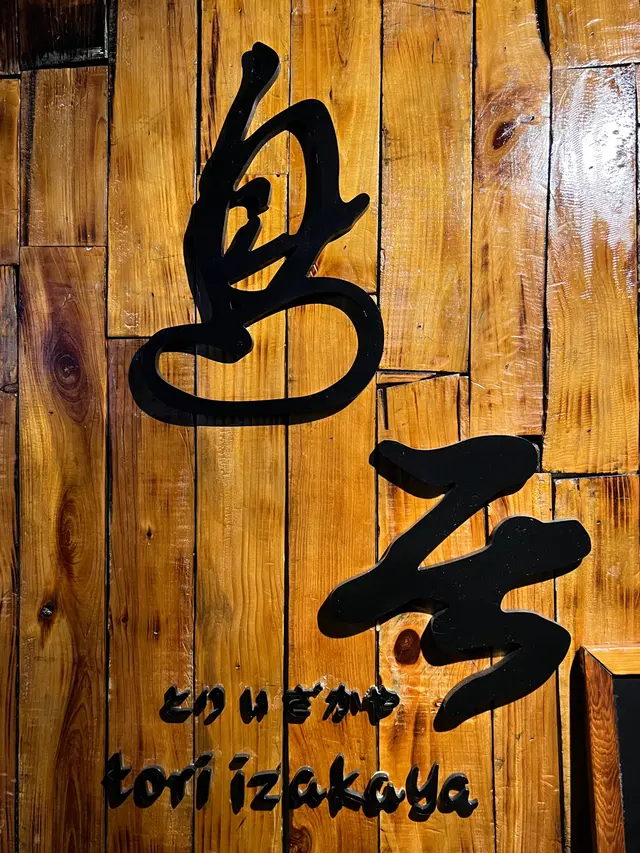 鳥
とりいざかや
tori izakaya